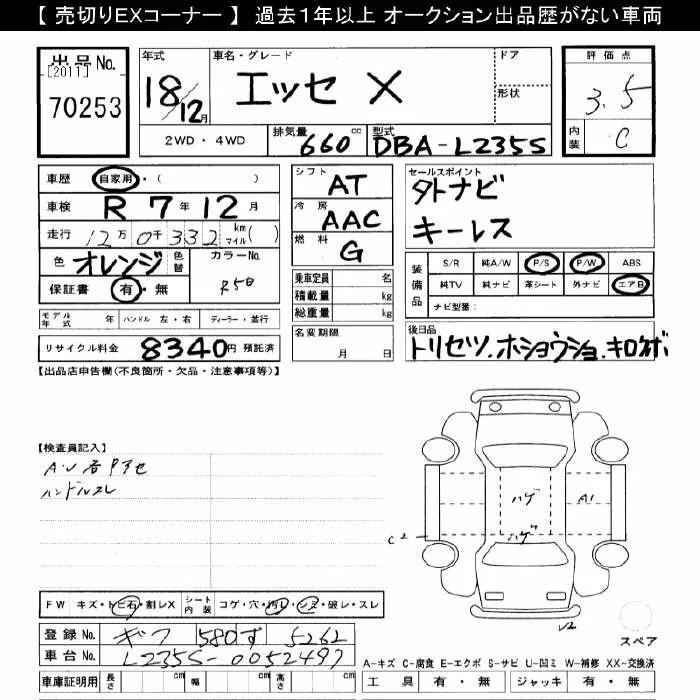 【 売切りEXコーナー 】 過去1年以上 オークション出品歴がない車両
出品No. [2011] 70253
年式 18/12月
車名・グレード エッセ X
ドア
形状
評価点 3.5
内装 C
2WD・4WD
排気量 660cc
型式 DBA-L235S
車歴 自家用・( )
車検 R7年12月
走行 12万0千332 km マイル( )
色 オレンジ 色替 カラーNo. R50
保証書 有・無
シフト AT
冷房 AAC
燃料 G
乗車定員 名
積載量 kg
総重量 kg
名変期限 月 日
セールスポイント
外ナビ
キーレス
装備品 S/R 純A/W P/S P/W ABS
純TV 純ナビ 革シート 外ナビ エアB
ナビ型番:
モデル年式 年 ハンドル 左・右 ディーラー・並行
リサイクル料金 8340円 預託済
後日品
トリセツ.ホショウショ.キロメボ
【出品店申告欄(不良箇所・欠品・注意事項等)】
【検査員記入】
ハンドルスレ
ハゲ
A1
ハゲ
C2
V2
スペア
FW キズ・トビ石・割レX シート内装 コゲ・穴・汚レ・シミ・破レ・スレ
登録No. ギフ 580 す 5262
車台No. L235S-0052497
車庫証明用 長さ cm 幅 cm 高さ cm
A-キズ C-腐食 E-エクボ S-サビ U-凹ミ W-補修 XX-交換済
工具 有・無 ジャッキ 有・無